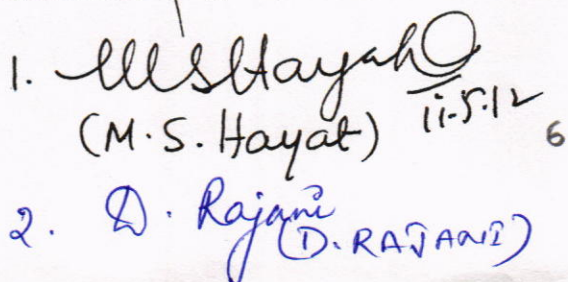 1. MSHayat
11.5.12
(M.S. Hayat)
6
2. D. Rajani
(D. RAJANI)